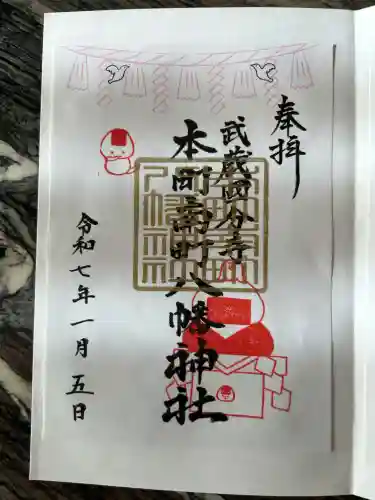 奉拝
武蔵国分寺
本町南町八幡神社
令和七年一月五日